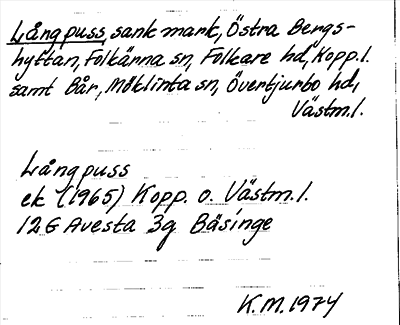 Långpuss, sank mark, Östra Bergs-
hyttan, Folkärna sn, Folkare hd, Kopp.l.
samt Bår, Möklinta sn, Övertjurbo hd,
Västm.l.
Långpuss
ek (1965) Kopp. o. Västm.l.
12G Avesta 3g Bäsinge
K.M. 1974